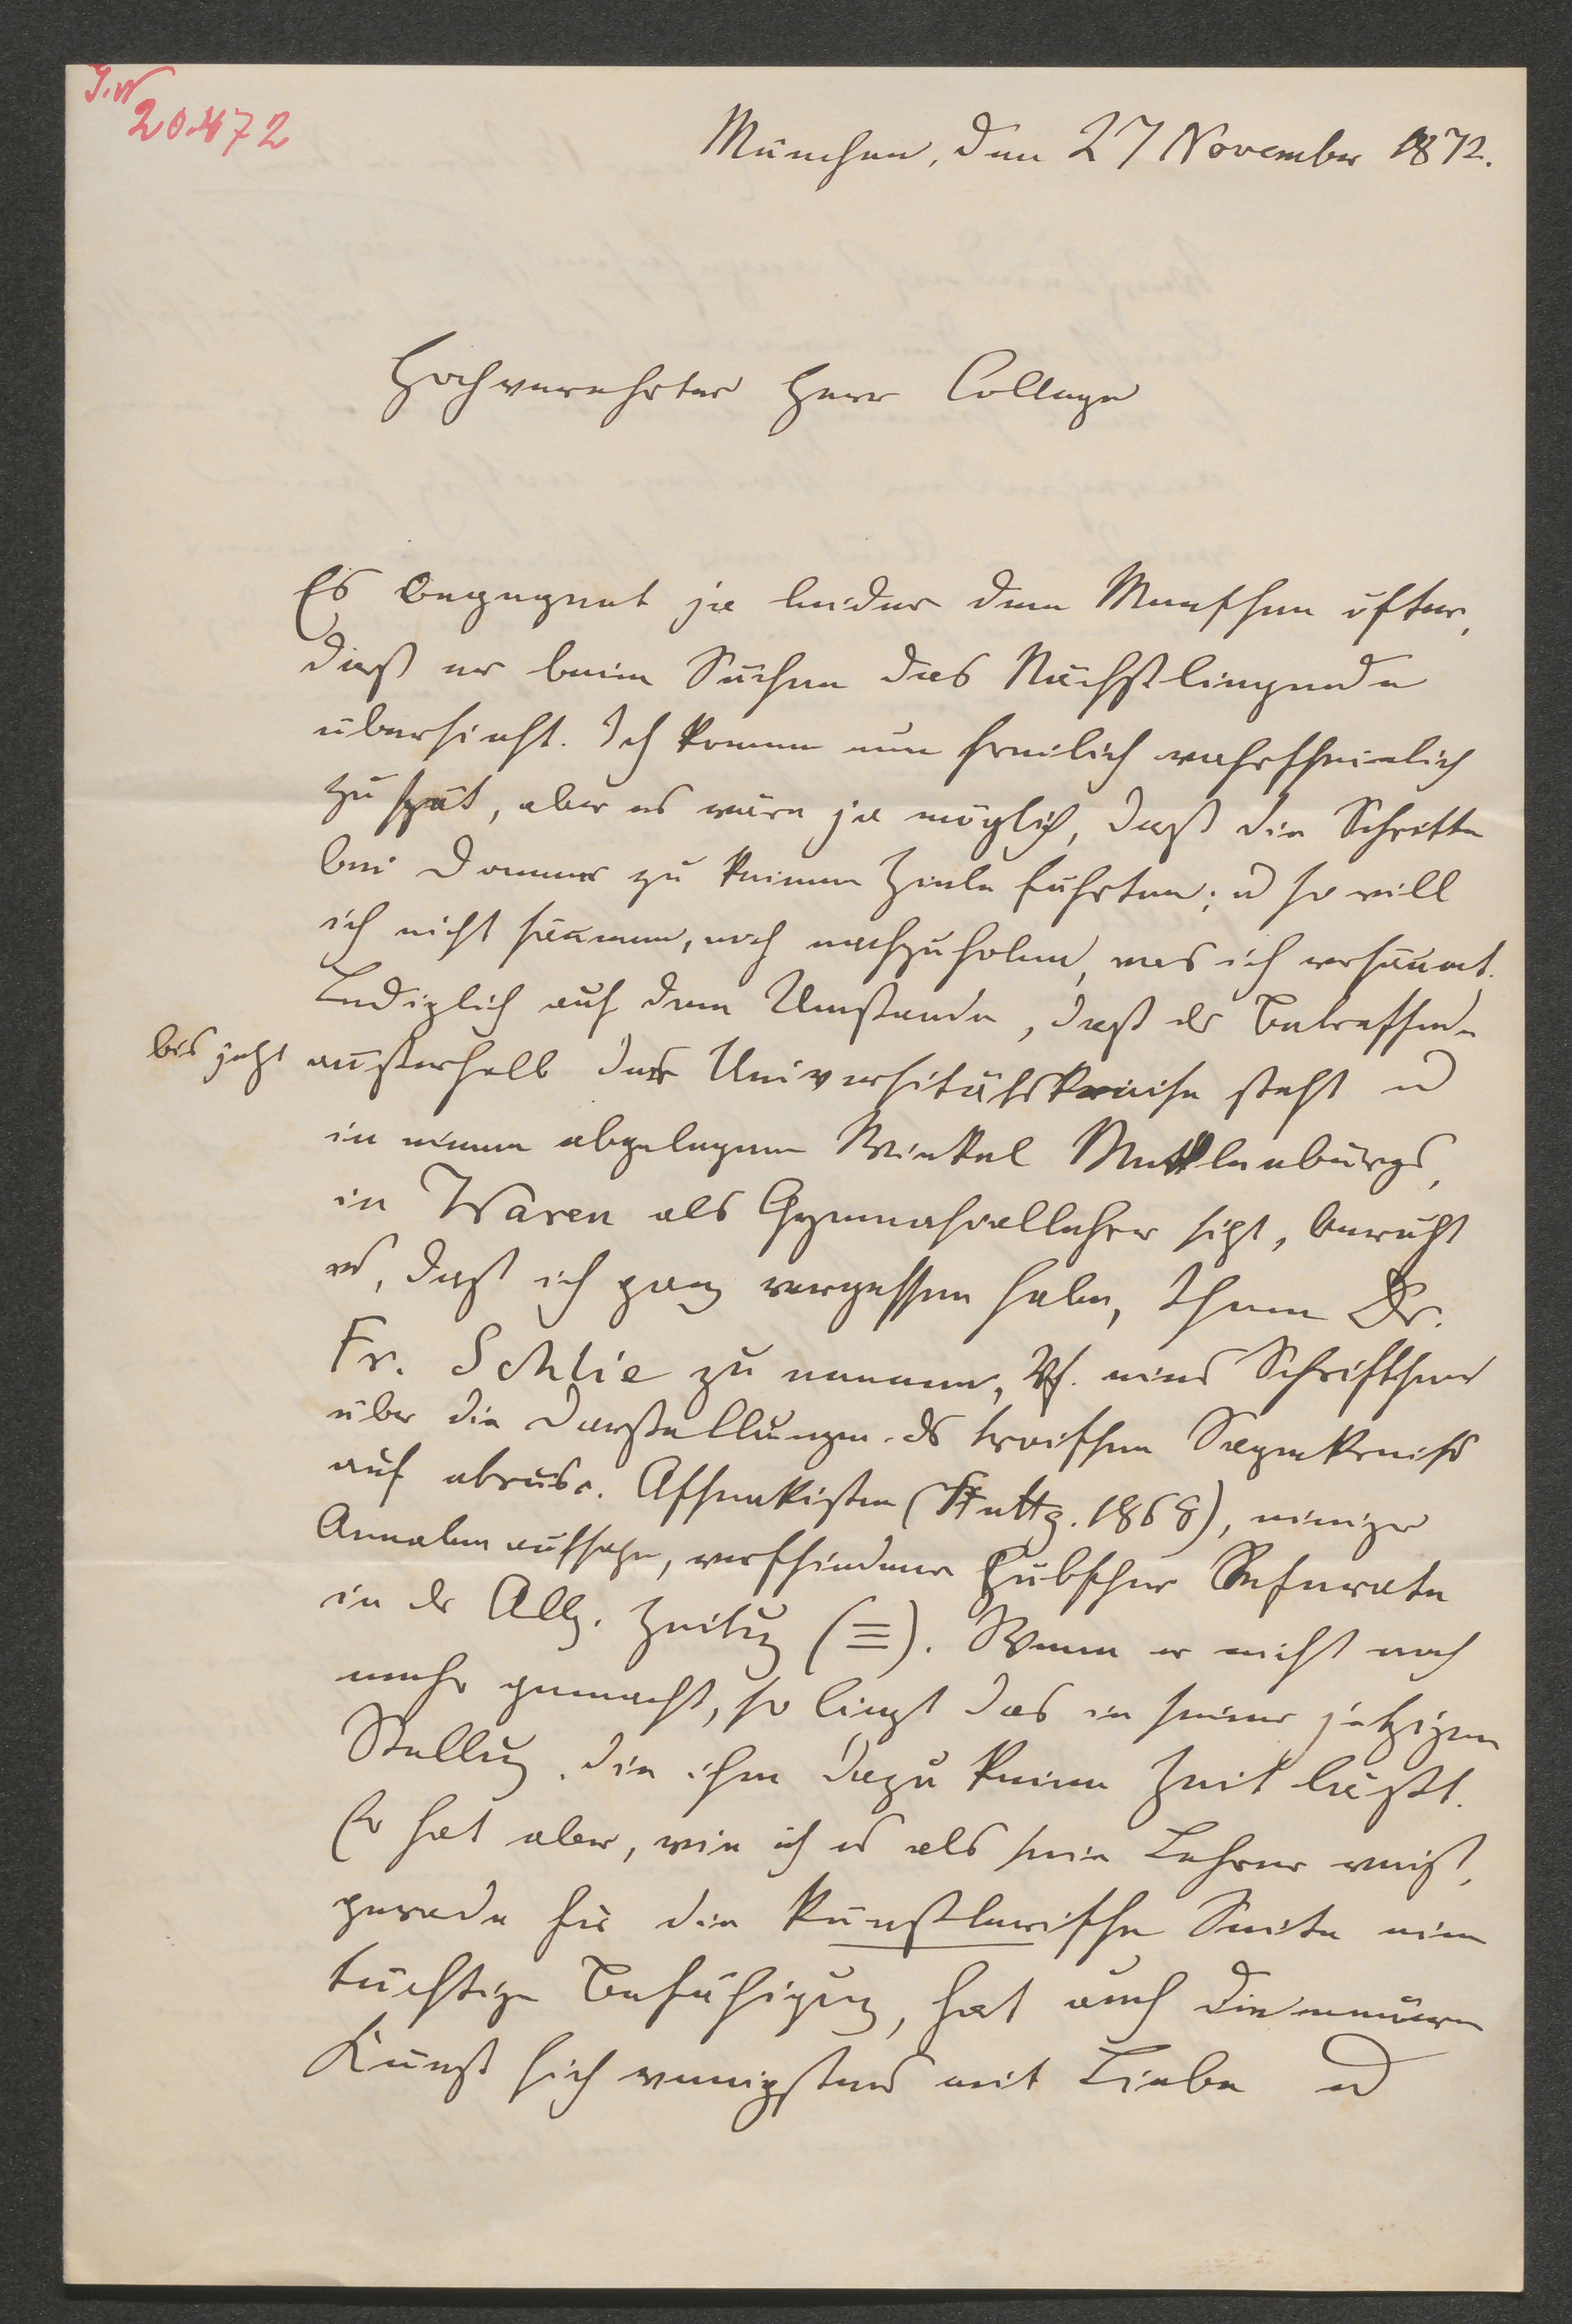 I.N
20.472
München, den 27 November 1872.
Hochverehrter Herr College
Es begegnet ja leider dem Menschen öfter,
daß er beim Suchen das Nächstliegende
übersieht. Ich komme nun freilich wahrscheinlich
zu spät, aber es wäre ja möglich, daß die Schritte
bei Donner zu keinem Ziele führten; u so will
ich nicht säumen, noch nachzuholen, was ich versäumt.
Lediglich auf dem Umstande, daß der Betreffende
bis jetzt außerhalb der Universitätskreise steht u
in einem abgelegenen Winkel Mecklenburgs,
in Waren als Gymnasiallehrer sitzt, beruht
es, daß ich ganz vergessen habe, Ihnen Dr.
Fr. Schlie zu nennen, Vf. eines Schriftchens
über die Darstellungen des troischen Sagenkreises
auf etrusc. Aschenkisten (Stuttg. 1868), einiger
Annalenaufsätze, verschiedener hübscher Referate
in der Allg. Zeitung (☰). Wenn er nicht noch
mehr gemacht, so liegt das in seiner jetzigen
Stellung, die ihm dazu keine Zeit läßt.
Er hat aber, wie ich es als sein Lehrer weiß,
gerade für die künstlerische Seite eine
tüchtige Befähigung, hat auch die neuere
Kunst sich wenigstens mit Liebe u